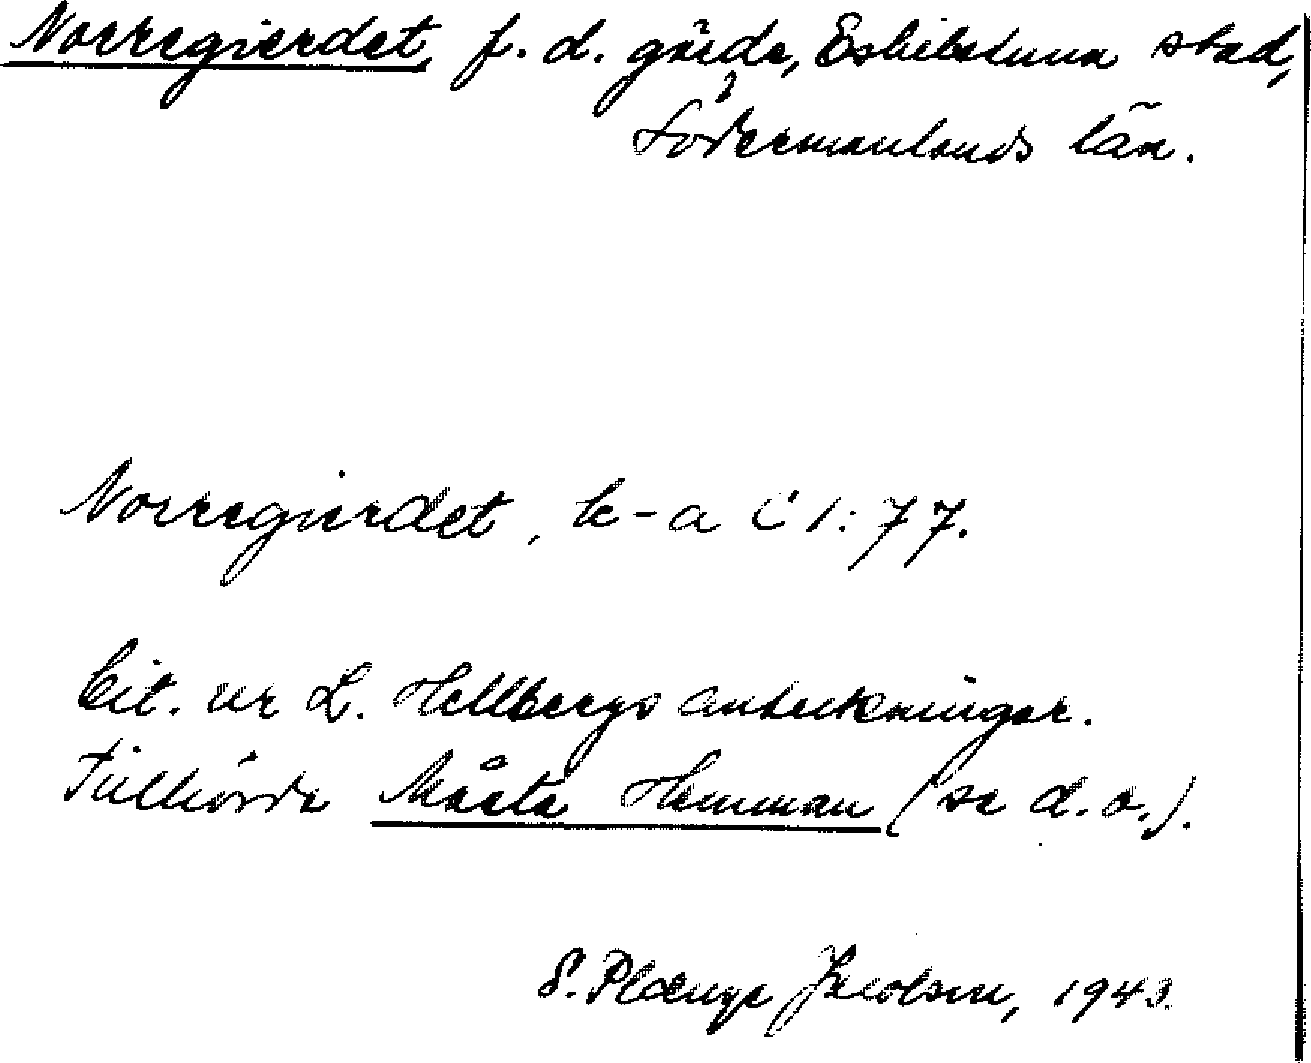 Norregierdet, f. d. gärde, Eskilstuna stad,
Södermanlands län.
Norregierdet, le-a C 1:77.
Cit. ur L. Hellbergs anteckningar.
Tillhörde Mårta Hemman (se d. o.).
S. Plænge Jacobson, 1943.